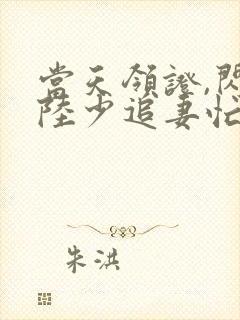 當天領證,閃
陸少追妻忙
朱洪